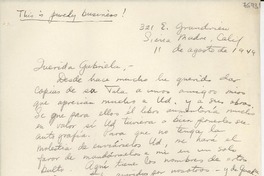 This is purely business!
321 E. Grandview
Sierra Madre, Calif
11 de agosto de 1949
Querida Gabriela,-
Desde hace mucho he querido dar
copias de su Tala a unos amigos míos
que aprecian mucho a Ud. y a su obra.
Se que para ellos el libro aumentaría mucho
en valor si Ud. tuviera a bien ponerles su
auto-grafía. Para que no tenga la
molestia de enviárselos Ud, me hará el
favor de mandármelos a mí en un solo
bulto. Aquí tiene los nombres de estos